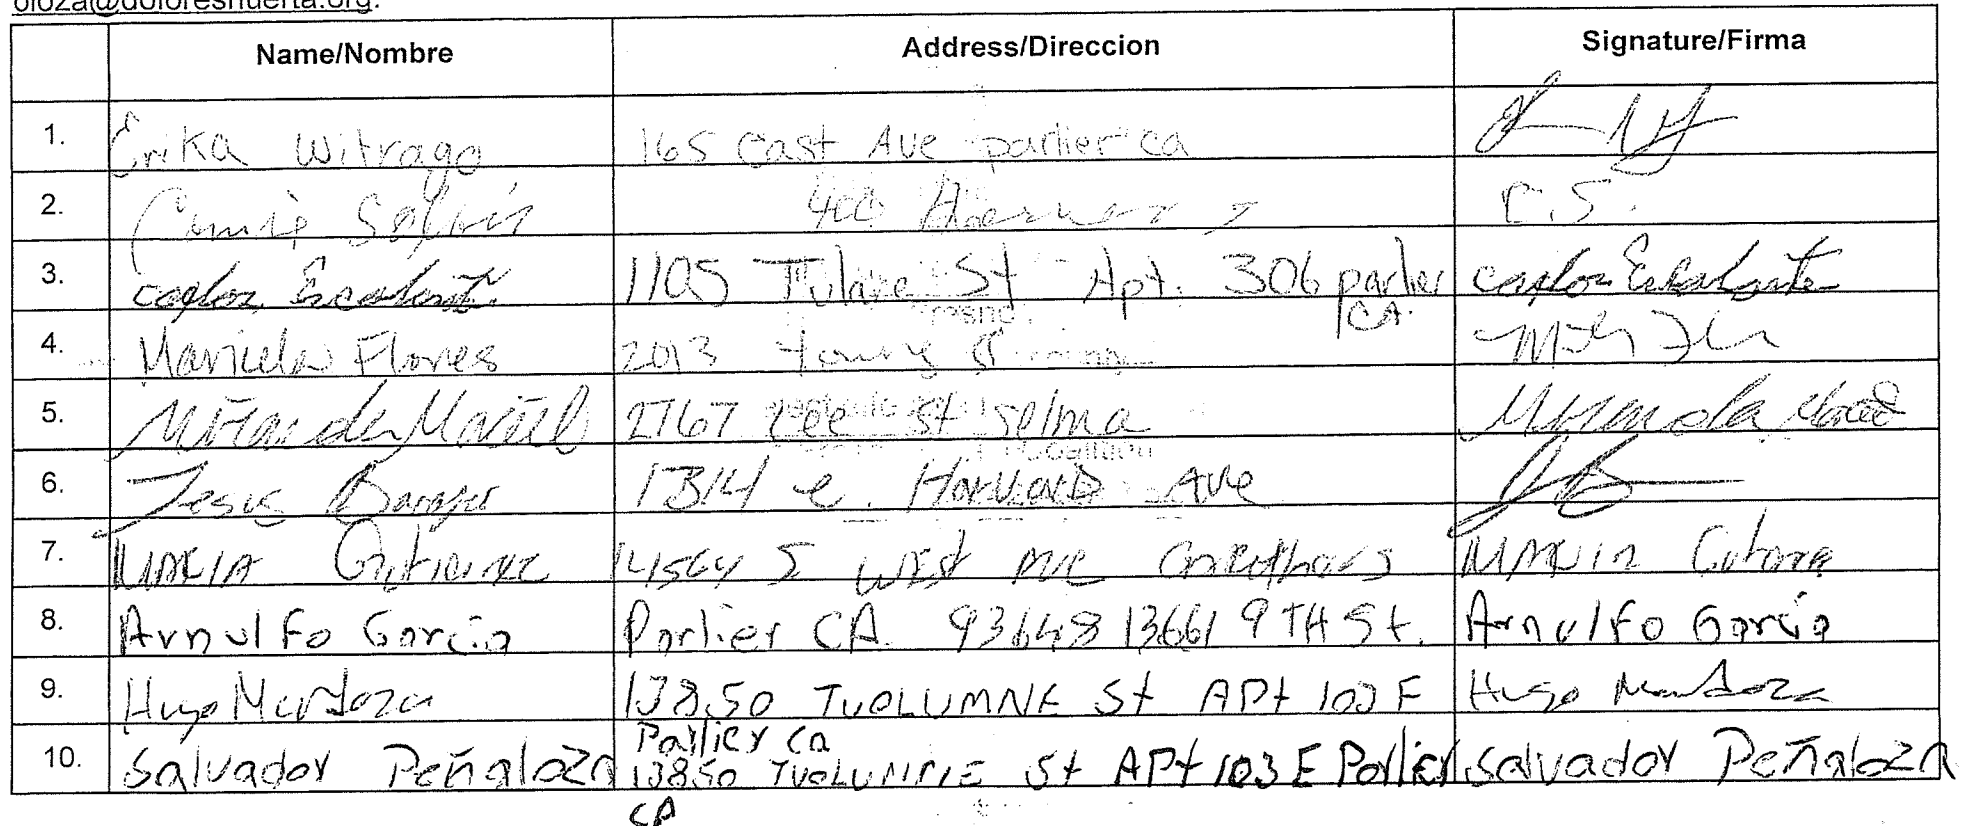 oloza@doloreshuerta.org.
Name/Nombre Address/Direccion Signature/Firma
1. Erika Witrago 165 East Ave parlier ca
2. 400 C.S.
3. carlos Escalante 1105 Tulare St Apt. 306 parlier carlos Escalante
CA.
4. Maricela Flores 2013 Young St
5. Miranda Maciel 2767 Lee St Selma Miranda Maciel
6. Jesus 1314 e. Harvard Ave
7. MARIA Gutierrez 14564 S West Ave Caruthers MARIA
8. Arnulfo Garcia Parlier CA. 93648 13661 9TH St. Arnulfo Garcia
9. Hugo Mendoza 13850 TUOLUMNE St APt 103 F Hugo Mendoza
Parlier ca
10. Salvador Peñaloza 13850 TUOLUMNE St APt 103 E Parlier Salvador Peñaloza
CA